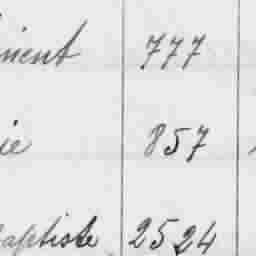 ment 777
ie 857
aptiste 2524